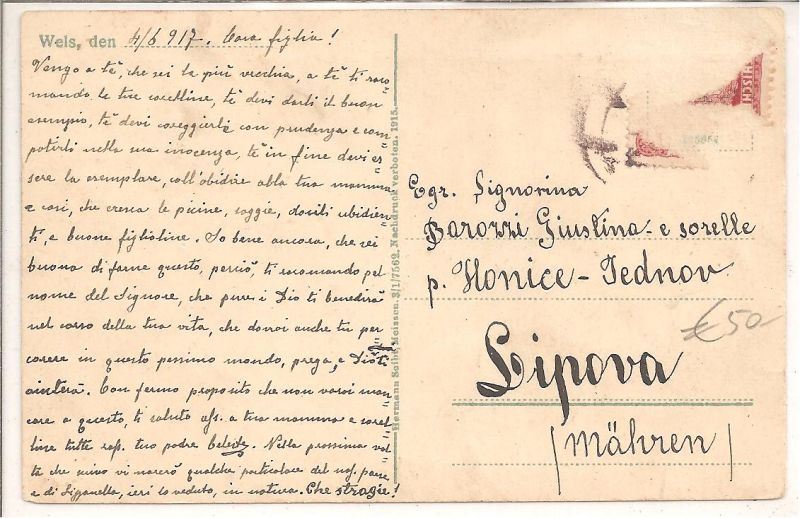 Wels, den 4/6 917. Cara figlia!
Vengo a tè, che sei la più vecchia, a tè ti raco
mando le tue sorelline, tè devi darli il buon
esempio, tè devi coreggierle con prudenza e com
patirli nella sua inocenza, tè in fine devi es
sere la esemplare, coll'obidire alla tua mamma
e così, che cresca le picine, saggie, docili ubidien
ti, e buone figlioline. Io bene ancora, che sei
buona di farne questo, perciò, ti racomando nel
nome del Signore, che pure i Dio ti benedirà
nel corso della tua vita, che dovrai anche tu per
corere in questo pessimo mondo, prega, e Dio ti
aiuterà. Con fermo proposito che non vorai man
care a questo, ti saluto aff. a tua mamma e sorel
line tutte tuo padre Celeste. Nella prossima vol
ta che scrivo vi narerò qualche particolare del nos. paese
e di ieri lo veduto, in natura. Che stragie!
Hermann Seibt, Meissen. 3/1/7562. Nachdruck verboten. 1915.
Egr. Signorina
Barozzi Giustina e sorelle
p. Honice - Jednov
Lipova
(Mähren)
€50-